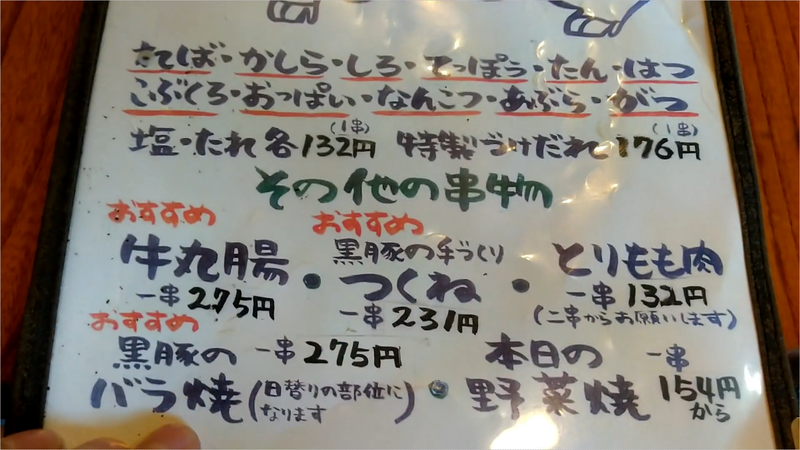 たてば・かしら・しろ・てっぽう・たん・はつ
こぶくろ・おっぱい・なんこつ・あぶら・がつ
塩・たれ各132円(1串) 特製づけだれ176円(1串)
その他の串物
おすすめ
牛丸腸
一串275円
おすすめ
黒豚の手づくり
つくね
一串231円
とりもも肉
一串132円
(二串からお願いします)
おすすめ
黒豚の 一串275円
バラ焼(日替りの部位になります)
本日の 一串
野菜焼 154円から